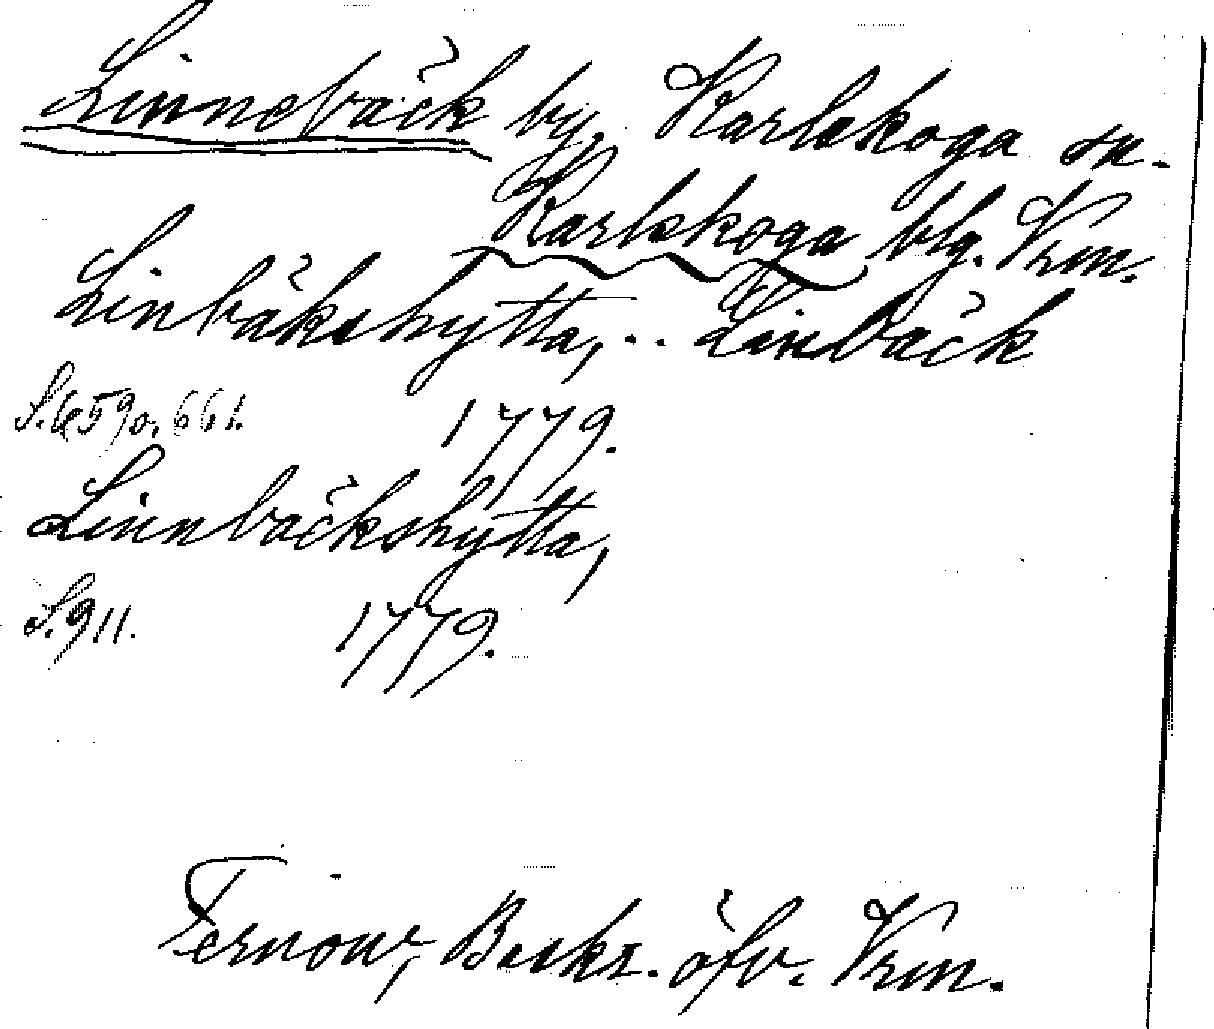 Linnebäck by, Karlskoga sn.
Karlskoga blg. Vrm.
Linbäkshytta, .. Linbäck
S. 659 o. 661. 1779.
Linnbäckshytta,
S. 911. 1779.
Fernow, Beskr. öfv. Vrm.